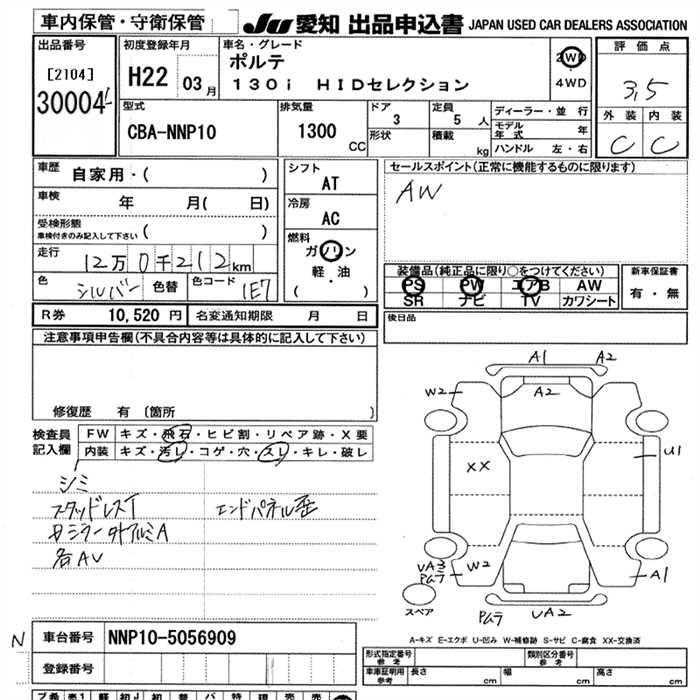 車内保管・守衛保管
JU 愛知 出品申込書 JAPAN USED CAR DEALERS ASSOCIATION
出品番号
[2104]
30004
初度登録年月
H22 03月
車名・グレード
ポルテ
130i HIDセレクション
2WD
・
4WD
評価点
3,5
外装 内装
C C
型式
CBA-NNP10
排気量
1300
CC
ドア
3
形状
定員
5 人
積載
kg
ディーラー・並行
モデル年式 年
ハンドル 左・右
車歴
自家用・( )
車検
年 月( 日)
受検形態
車検付きのみ記入して下さい ( )
走行
12万0千212km
色
シルバー
色替
色コード
1E7
シフト
AT
冷房
AC
燃料
ガソリン
・
軽・油
( )
セールスポイント(正常に機能するものに限ります)
AW
装備品(純正品に限り○をつけてください)
PS PW エアB AW
SR ナビ TV カワシート
新車保証書
有・無
後日品
R券 10,520 円
名変通知期限 月 日
注意事項申告欄(不具合内容等は具体的に記入して下さい)
修復歴 有 〔箇所 〕
検査員記入欄
FW キズ・飛石・ヒビ割・リペア跡・X要
内装 キズ・汚レ・コゲ・穴・スレ・キレ・破レ
シミ
スタッドレスT
エンドパネル歪
ミラー
アルミA
各AU
A1
A2
W2
A2
XX
U1
UA3
Pムラ
W2
A1
スペア
Pムラ
UA2
A-キズ E-エクボ U-凹み W-補修跡 S-サビ C-腐食 XX-交換済
N
車台番号 NNP10-5056909
登録番号
形式指定番号
参考
類別区分番号
参考
車庫証明用
参考
長さ cm
幅 cm
高さ cm